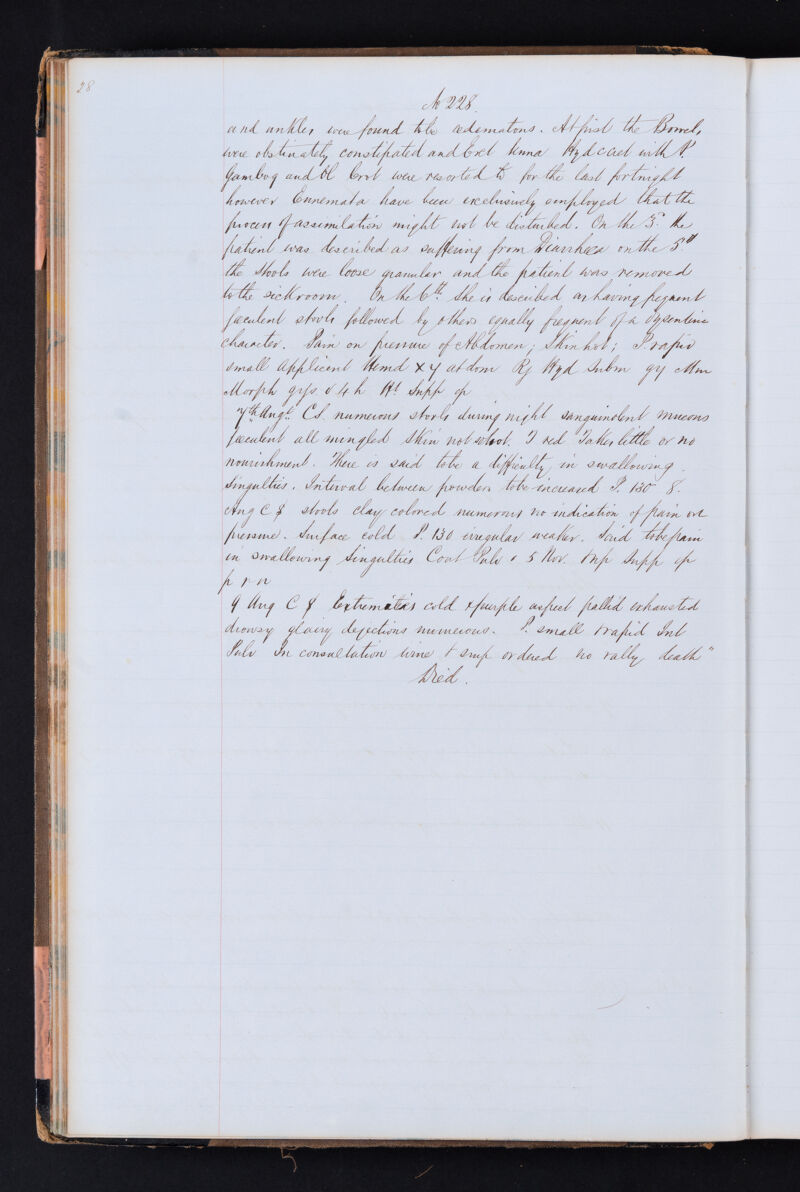 28
No 228.
and ankles were found to be œdematous. At first the Bowels
were obstinately constipated and Ext Senna Hyd c cret with P.
Gambog and Ol Crot were resorted to for the last fortnight
however Ennemata have been exclusively employed that the
process of assimilation might not be disturbed. On the 3d. the
patient was described as suffering from Diarrhœa on the 5th
the stools were loose granular and the patient was removed
to the sickroom. On the 6th. She is described as having frequent
fœculent stools followed by others equally frequent of a dysenteric
character. Pain on pressure of Abdomen; Skin hot; P. rapid
small Applicent Hirud X y abdom Rj Hyd Subm gr Mur
Morph 4 h Supp op
7th. Augt. C S. numerous stools during night sanguinolent mucous
fœculent all mingled Skin not so hot. T red Takes little or no
nourishment. There is said to be a difficulty in swallowing.
Singulties. Interval between powders to be increased P. 130 8.
Aug C S stools clay colored numerous no indication of pain on
pressure. Surface cold P. 130 irregular weaker. Said to be pain
in swallowing Singulties Cont Pulv 5 Hor. Rep Supp op
p r n
9 Aug C S Extremities cold & purple aspect pallid exhausted
drowsy glairy dejections numerous. P. small & rapid Int
Pulv In consultation wine & soup ordered no rally death"
Died.